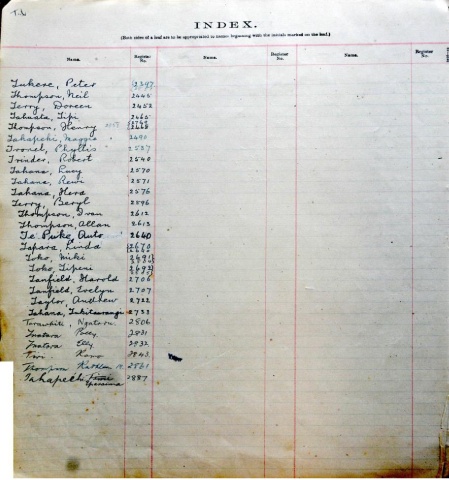 T.6
INDEX.
(Both sides of a leaf are to be appropriated to names beginning with the initials marked on the leaf.)
Name. Register No. Name. Register No. Name. Register No.
Tukere, Peter
Thompson, Neil 2445
Terry, Doreen 2452
Tahuata, Tipi 2465
Thompson, Henry
Tahapehi, Maggie 2490
Tronel, Phyllis 2537
Trinder, Robert 2540
Tahana, Lucy 2570
Tahana, Rewi 2571
Tahana, Hera 2576
Terry, Beryl 2596
Thompson, Ivan 2612
Thompson, Allan 2613
Te Puke, Auto 2640
Tapara, Linda 2670
Toko, Niki 2691
Toko, Tipeni 2692
Tanfield, Harold 2706
Tanfield, Evelyn 2707
Taylor, Andrew 2722
Tahana, 2733
Tarawhiti, 2806
Polly 2831
Elly 2832
Tiwi 2843
Thompson 2861
Tahapechi 2887